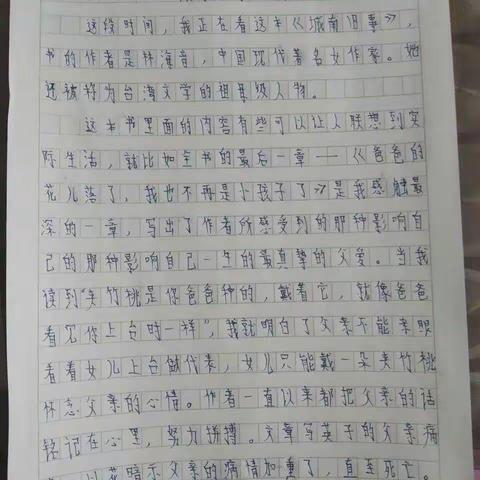 这段时间，我正在看这本《城南旧事》，
书的作者是林海音，中国现代著名女作家。她
还被称为台湾文学的祖母级人物。
这本书里面的内容有些可以让人联想到实
际生活，就比如全书的最后一章——《爸爸的
花儿落了，我也不再是小孩子了》是我感触最
深的一章，写出了作者所感受到的那种影响自
己的那种影响自己一生的最真挚的父爱。当我
读到“夹竹桃是你爸爸种的，戴着它，就像爸爸
看见你上台时一样”，我就明白了父亲不能亲眼
看着女儿上台做代表，女儿只能戴一朵夹竹桃
怀念父亲的心情。作者一直以来都把父亲的话
铭记在心里，努力拼搏。文章写英子的父亲病
以花暗示父亲的病情加重了，直至死亡。